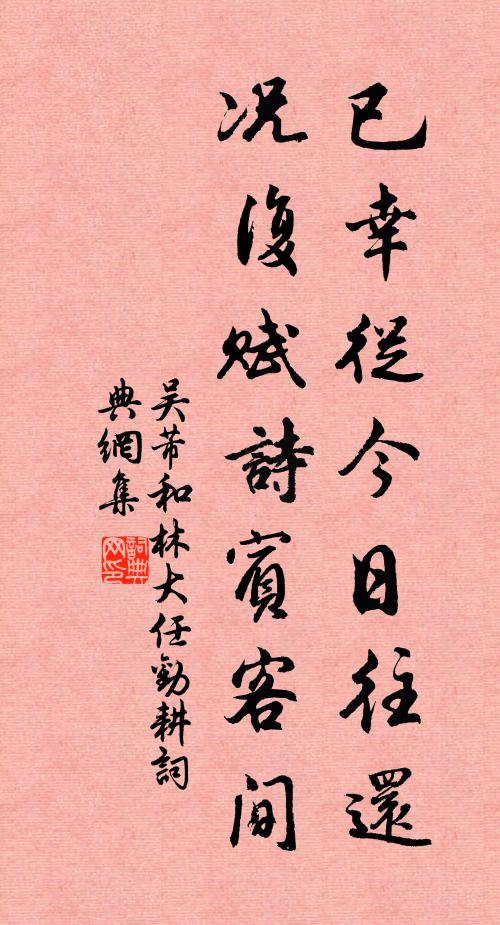 已幸從今日往還
況復賦詩賓客間
吴芾和林大任勸耕詞
典網集
詞典
网印